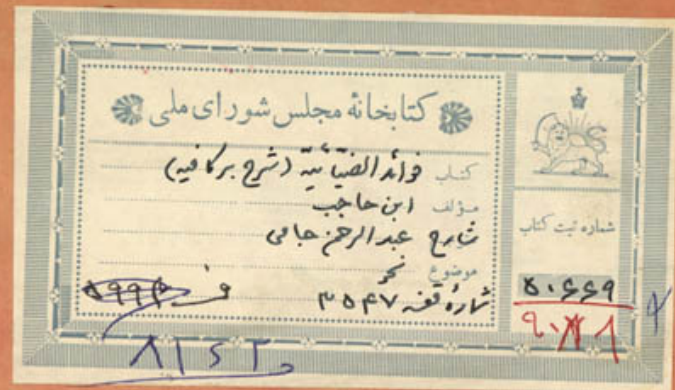 کتابخانهٔ مجلس شورای ملی
کتاب فوائد الضیائیة (شرح بر کافیه)
مؤلف ابن حاجب
شارح عبدالرحمن جامی
موضوع نحو
شمارهٔ قفسه ۳۵۴۷
شماره ثبت کتاب
۵۰۶۶۹